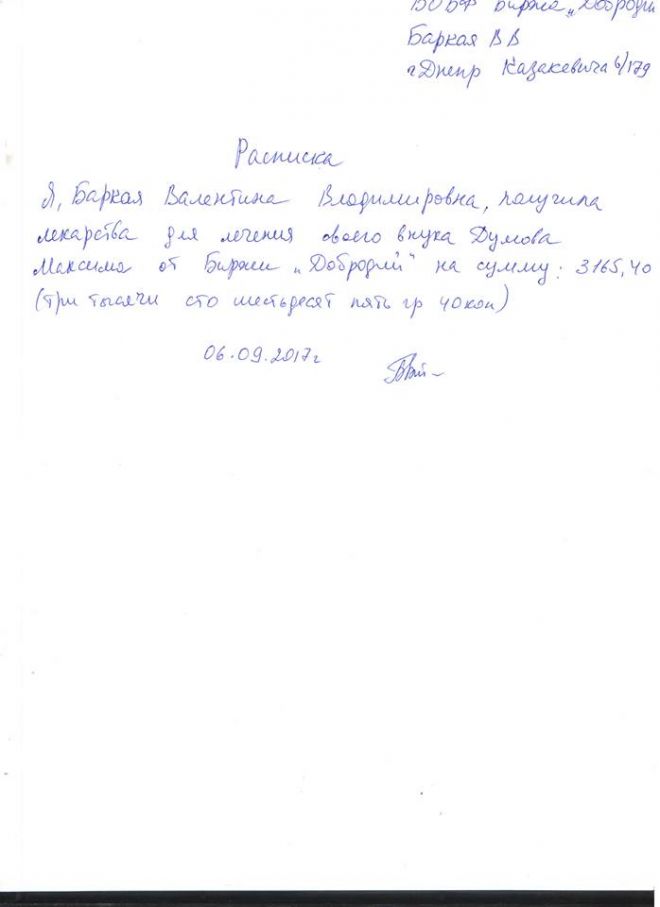 ВОБФ Биржа „Добродии
Баркая В В
г Днепр Казакевича 6/179
Расписка
Я, Баркая Валентина Владимировна, получила
лекарства для лечения своего внука Думова
Максима от Биржи „Добродий" на сумму: 3165,40
(три тысячи сто шестьдесят пять гр 40 коп)
06.09.2017г